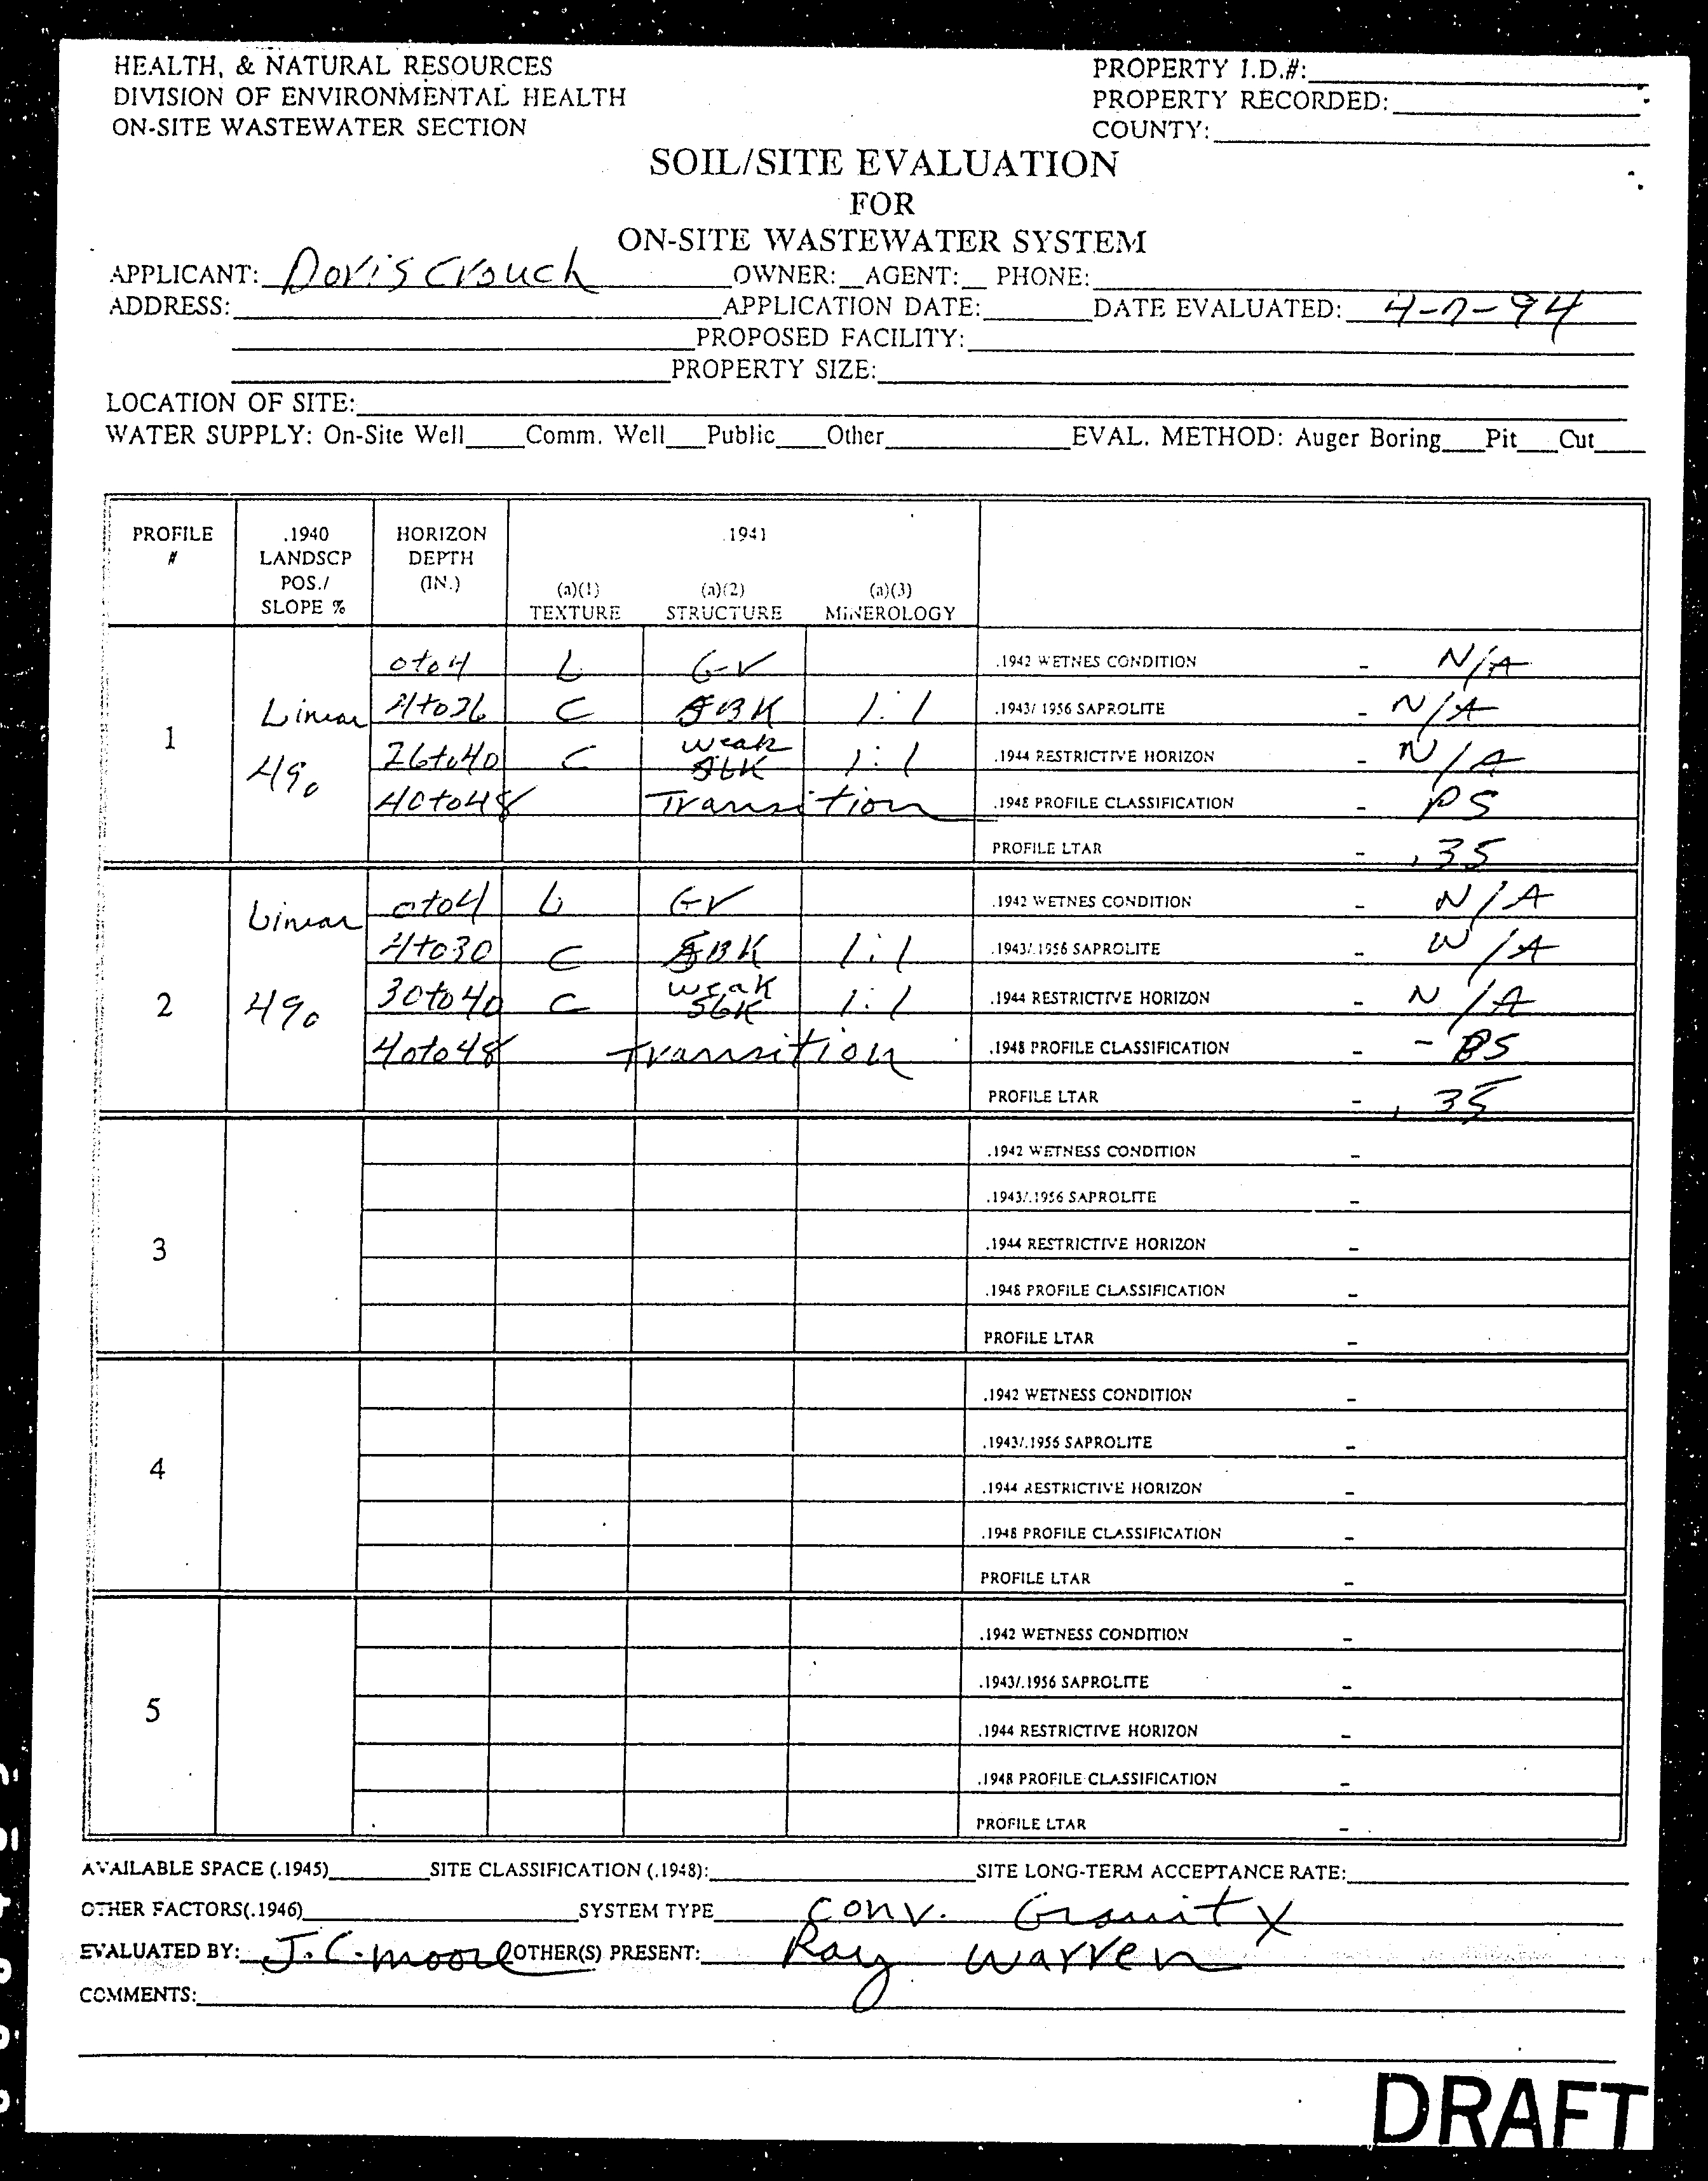 HEALTH, & NATURAL RESOURCES
DIVISION OF ENVIRONMENTAL HEALTH
ON-SITE WASTEWATER SECTION
PROPERTY I.D.#:
PROPERTY RECORDED:
COUNTY:
SOIL/SITE EVALUATION
FOR
ON-SITE WASTEWATER SYSTEM
APPLICANT: Doris Crouch OWNER: AGENT: PHONE:
ADDRESS: APPLICATION DATE: DATE EVALUATED: 4-7-94
PROPOSED FACILITY:
PROPERTY SIZE:
LOCATION OF SITE:
WATER SUPPLY: On-Site Well Comm. Well Public Other EVAL. METHOD: Auger Boring Pit Cut
PROFILE # .1940 LANDSCP POS./ SLOPE % HORIZON DEPTH (IN.) .1941
(a)(1) TEXTURE (a)(2) STRUCTURE (a)(3) MINEROLOGY
1 Linear 4%
0 to 4 L Gr .1942 WETNES CONDITION - N/A
4 to 26 C SBK 1:1 .1943/ 1956 SAPROLITE - N/A
26 to 40 C weak SBK 1:1 .1944 RESTRICTIVE HORIZON - N/A
40 to 48 Transition .1948 PROFILE CLASSIFICATION - PS
PROFILE LTAR - .35
2 Linear 4%
0 to 4 L Gr .1942 WETNES CONDITION - N/A
4 to 30 C SBK 1:1 .1943/.1956 SAPROLITE - N/A
30 to 40 C weak SBK 1:1 .1944 RESTRICTIVE HORIZON - N/A
40 to 48 transition .1948 PROFILE CLASSIFICATION - - PS
PROFILE LTAR - .35
3
.1942 WETNESS CONDITION -
.1943/.1956 SAPROLITE -
.1944 RESTRICTIVE HORIZON -
.1948 PROFILE CLASSIFICATION -
PROFILE LTAR -
4
.1942 WETNESS CONDITION -
.1943/.1956 SAPROLITE -
.1944 RESTRICTIVE HORIZON -
.1948 PROFILE CLASSIFICATION -
PROFILE LTAR -
5
.1942 WETNESS CONDITION -
.1943/.1956 SAPROLITE -
.1944 RESTRICTIVE HORIZON -
.1948 PROFILE CLASSIFICATION -
PROFILE LTAR -
AVAILABLE SPACE (.1945) SITE CLASSIFICATION (.1948): SITE LONG-TERM ACCEPTANCE RATE:
OTHER FACTORS(.1946) SYSTEM TYPE conv. Gravity
EVALUATED BY: J.C. Moore OTHER(S) PRESENT: Ray Warren
COMMENTS:
DRAFT